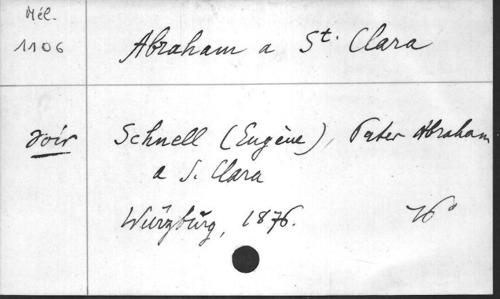 Mél.
1106
Abraham a St. Clara
voir Schnell (Eugène), Pater Abraham
a S. Clara
Würzburg, 1876. 16°